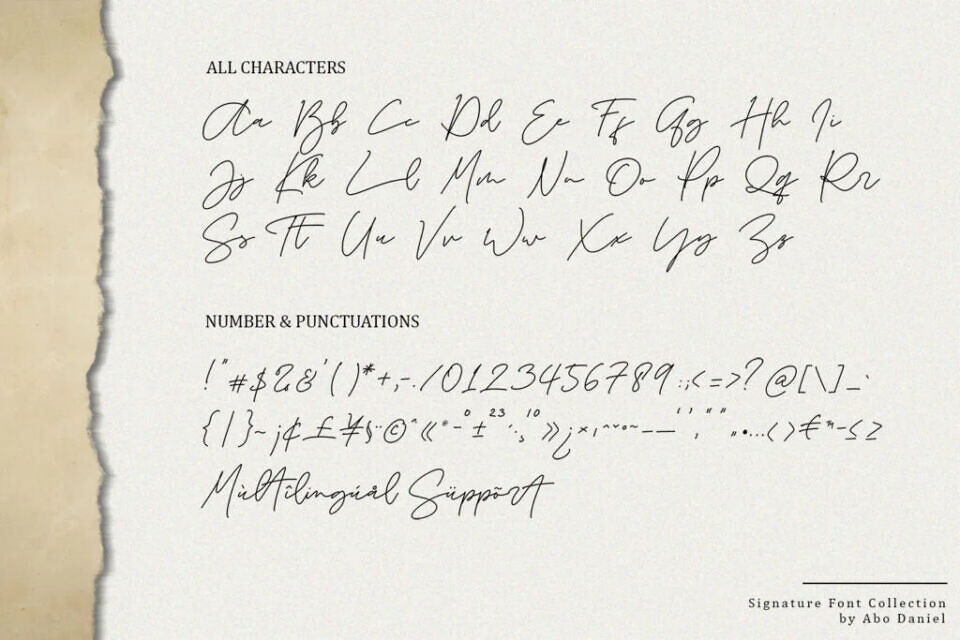 ALL CHARACTERS
Aa Bb Cc Dd Ee Ff Gg Hh Ii
Jj Kk Ll Mm Nn Oo Pp Qq Rr
Ss Tt Uu Vv Ww Xx Yy Zz
NUMBER & PUNCTUATIONS
!"#$%&'()*+,-./0123456789:;<=>?@[\]_`
{|}~¡¢£¥§¨©ª«®¯°±²³´·¸¹º»¿×ˆˇ˘˚˜–—‘’‚“”„•…‹›€™−≤≥
Mùltîlingúål Süppõrt
Signature Font Collection
by Abo Daniel